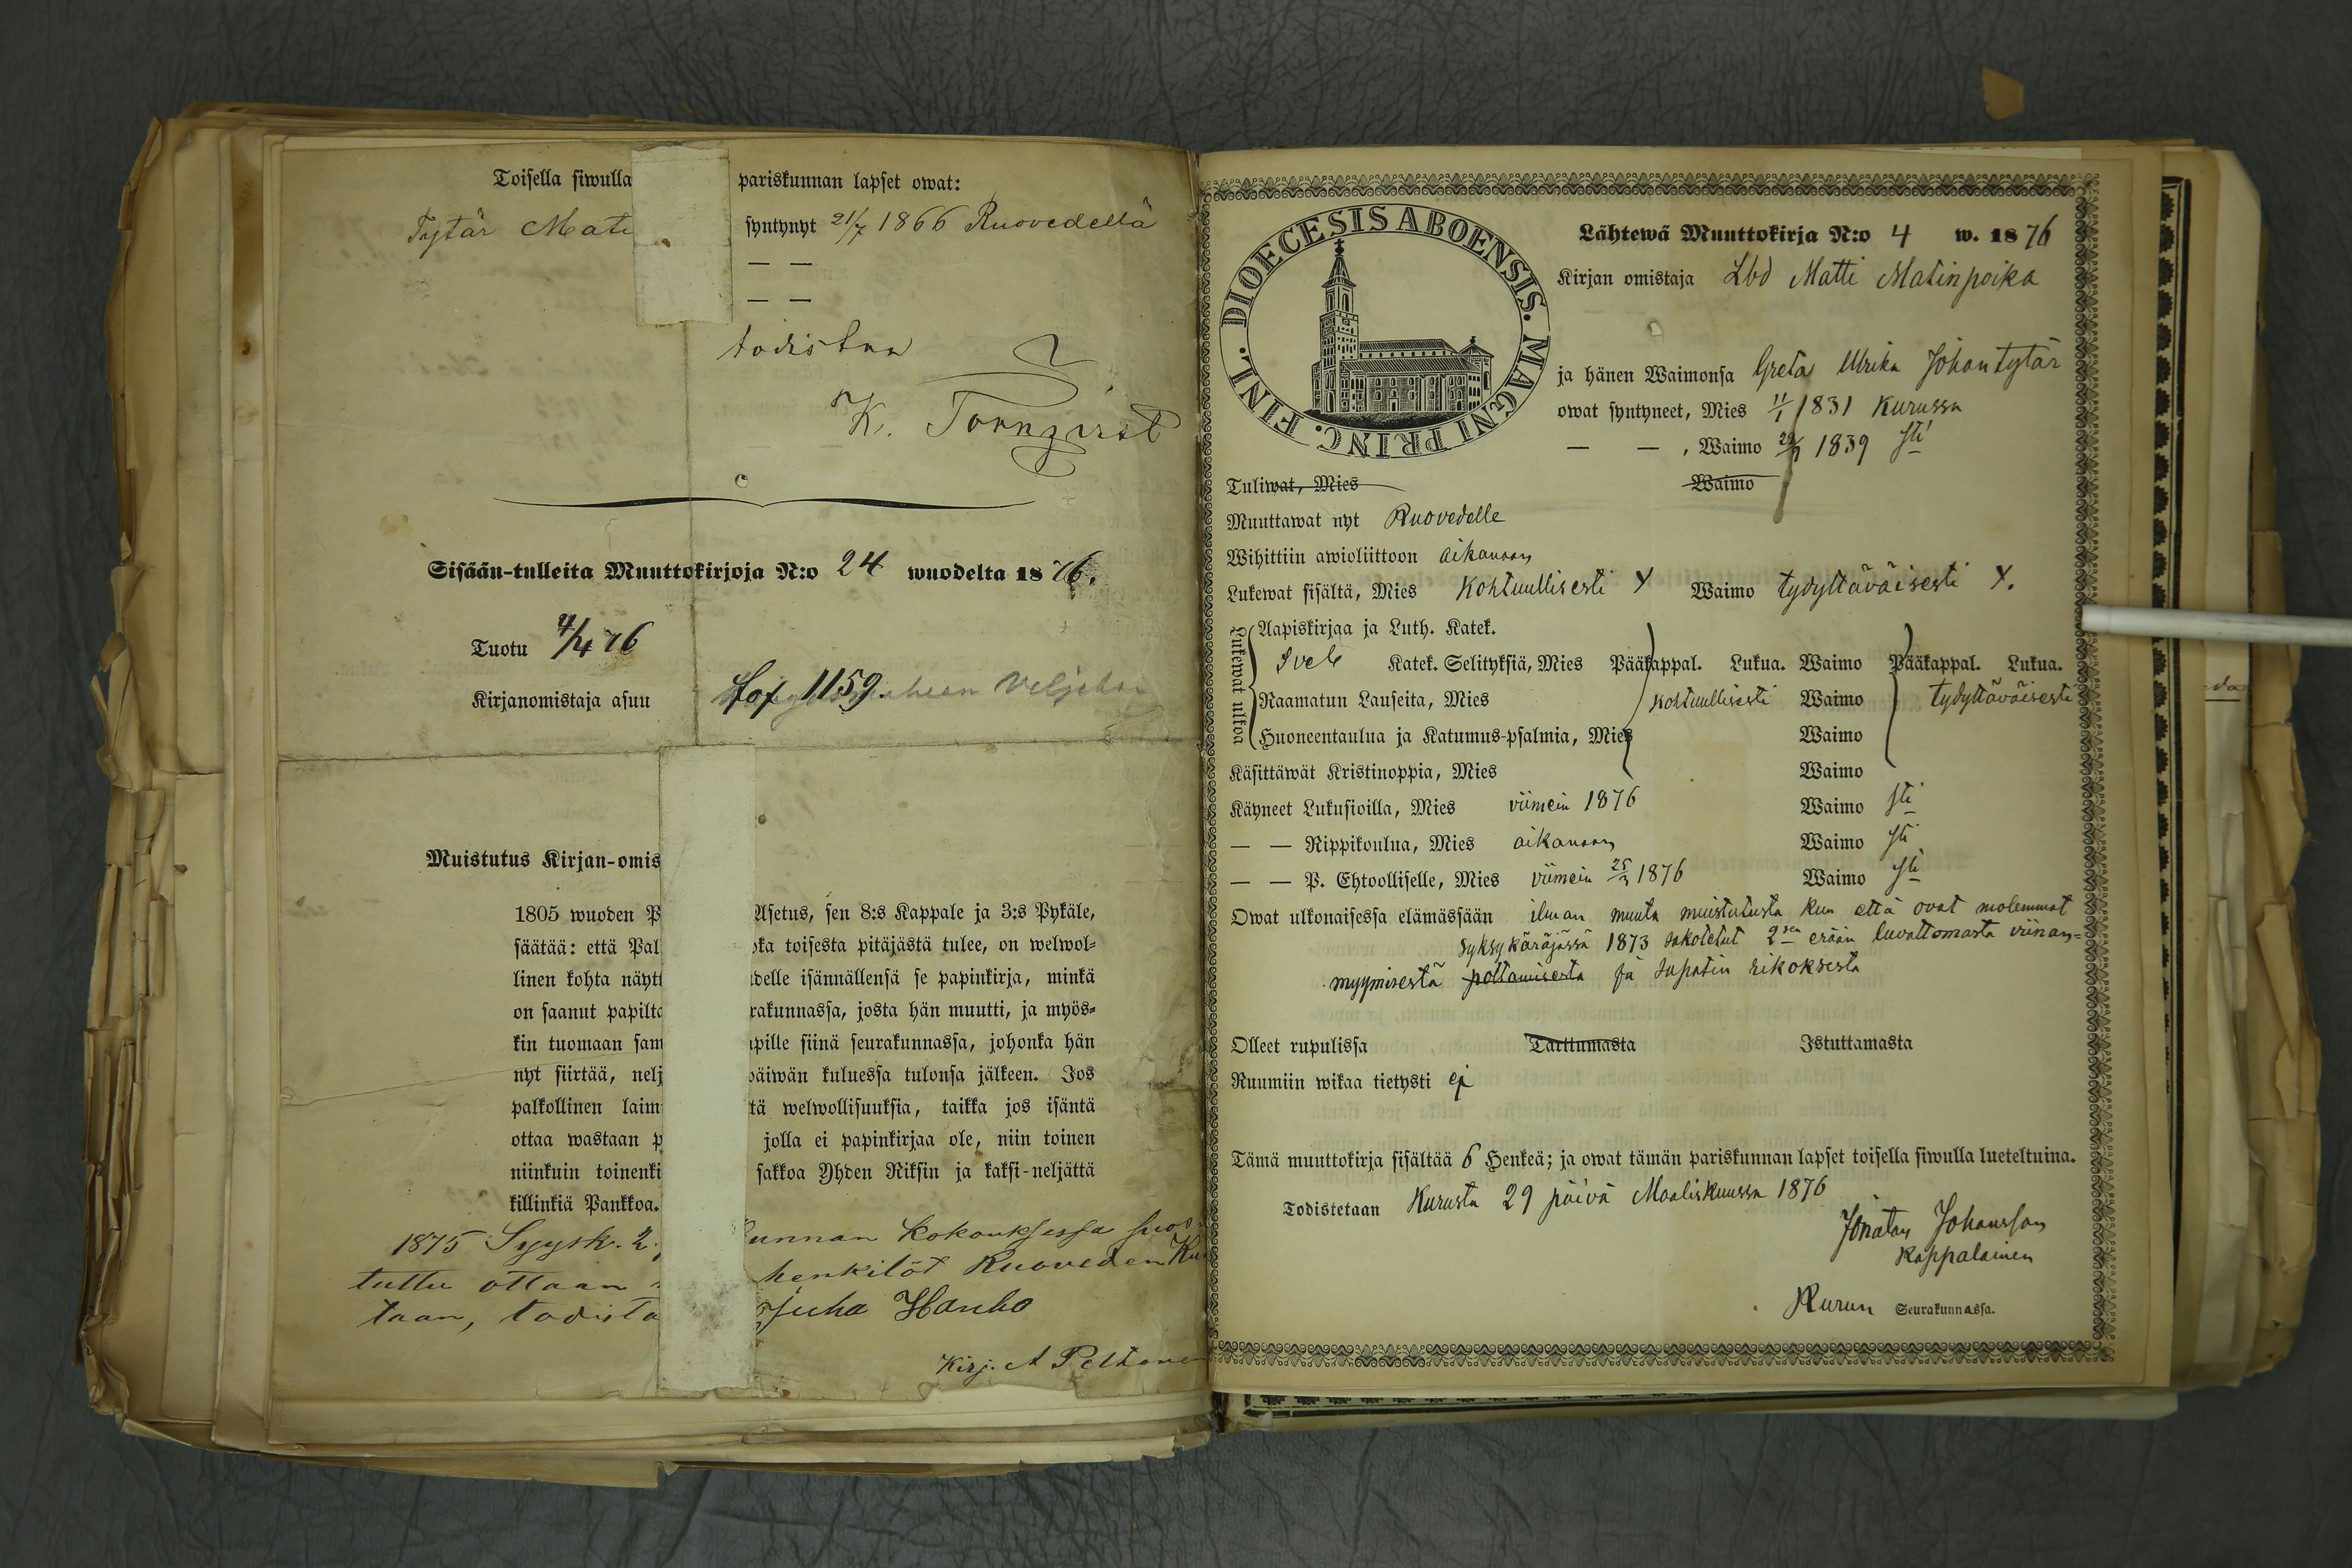 Toisella siwulla pariskunnan lapset owat:
Tytär Mat syntynyt 21/7 1866 Ruovedellä
— —
— —
todistaa
K. Tornqvist
Sisään-tulleita Muuttokirjoja N:o 24 wuodelta 1876.
Tuotu 4/4 76
Kirjanomistaja asuu 1159.
Muistutus Kirjan-omis
1805 wuoden P Asetus, sen 8:s Kappale ja 3:s Pykäle,
säätää: että Pal ka toisesta pitäjästä tulee, on welwol-
linen kohta näytt delle isännällensä se papinkirja, minkä
on saanut papilta rakunnassa, josta hän muutti, ja myös-
kin tuomaan sam pille siinä seurakunnassa, johonka hän
nyt siirtää, nelj päiwän kuluessa tulonsa jälkeen. Jos
palkollinen laim tä welwollisuuksia, taikka jos isäntä
ottaa wastaan p jolla ei papinkirjaa ole, niin toinen
niinkuin toinenki sakkoa Yhden Riksin ja kaksi-neljättä
killinkiä Pankkoa.
1875 Syysk. 2. unnan Kokouksessa suos
tuttu ottaan henkilöt Ruoveden Ku
taan, todista Juha Hanho
Kirj. A Peltonen
DIOECESIS ABOENSIS. MAGNI PRINC. FINL.
Lähtewä Muuttokirja N:o 4 w. 1876
Kirjan omistaja Lbd Matti Matinpoika
ja hänen Waimonsa Greta Ulrika Johantytär
owat syntyneet, Mies 11/1 1831 Kurussa
— — , Waimo 1839 sti
Tuliwat, Mies Waimo
Muuttawat nyt Ruovedelle
Wihittiin awioliittoon aikanaan
Lukewat sisältä, Mies Kohtuullisesti X Waimo tydyttäväisesti X.
Lukewat ulkoa
Aapiskirjaa ja Luth. Katek.
Sveb Katek. Selityksiä, Mies Pääkappal. Lukua. Waimo Pääkappal. Lukua.
Raamatun Lauseita, Mies kohtuullisesti Waimo tydyttäväisesti
Huoneentaulua ja Katumus-psalmia, Mies Waimo
Käsittäwät Kristinoppia, Mies Waimo
Käyneet Lukusioilla, Mies viimein 1876 Waimo sti
— — Rippikoulua, Mies aikanaan Waimo sti
— — P. Ehtoolliselle, Mies viimein 25/3 1876 Waimo sti
Owat ulkonaisessa elämässään ilman muuta muistutusta kun että ovat molemmat
syksykäräjässä 1873 sakotetut 2sen erään luvattomasta viinan-
myymisestä polttamisesta ja sapatin rikoksesta
Olleet rupulissa Tarttumasta Istuttamasta
Ruumiin wikaa tietysti ej
Tämä muuttokirja sisältää 6 Henkeä; ja owat tämän pariskunnan lapset toisella siwulla lueteltuina.
Todistetaan Kurusta 29 päivä Maaliskuussa 1876
Jonatan Johansson
Kappalainen
Kurun Seurakunnassa.